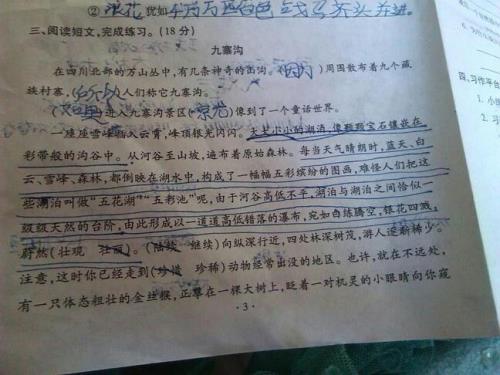 ② 浪花 犹如 千万万匹白色 战马 齐头并进。
三、阅读短文,完成练习。(18分)
九寨沟
在四川北部的万山丛中,有几条神奇的山沟。(因为)周围散布着九个藏
族村寨,(所以)人们称它九寨沟。
进入九寨沟景区( )像到了一个童话世界。
一座座雪峰插入云霄,峰顶银光闪闪。大大小小的湖泊,像颗颗宝石镶嵌在
彩带般的沟谷中。从河谷至山坡,遍布着原始森林。每当天气晴朗时,蓝天、白
云、雪峰、森林,都倒映在湖水中,构成了一幅幅五彩缤纷的图画,难怪人们把这
些湖泊叫做“五花湖”“五彩池”呢。由于河谷高低不平,湖泊与湖泊之间恰似一
级级天然的台阶,由此形成以一道道高低错落的瀑布,宛如白练腾空,银花四溅,
蔚然(壮观 壮丽)。(陆续 继续)向纵深行近,四处林深树茂,游人逐渐稀少。
注意,这时你已经走到(珍惜 珍稀)动物经常出没的地区。也许,就在不远处,
有一只体态粗壮的金丝猴,正攀在一棵大树上,眨着一对机灵的小眼睛向你窥
·3·
四、习作平台
1.
2.习